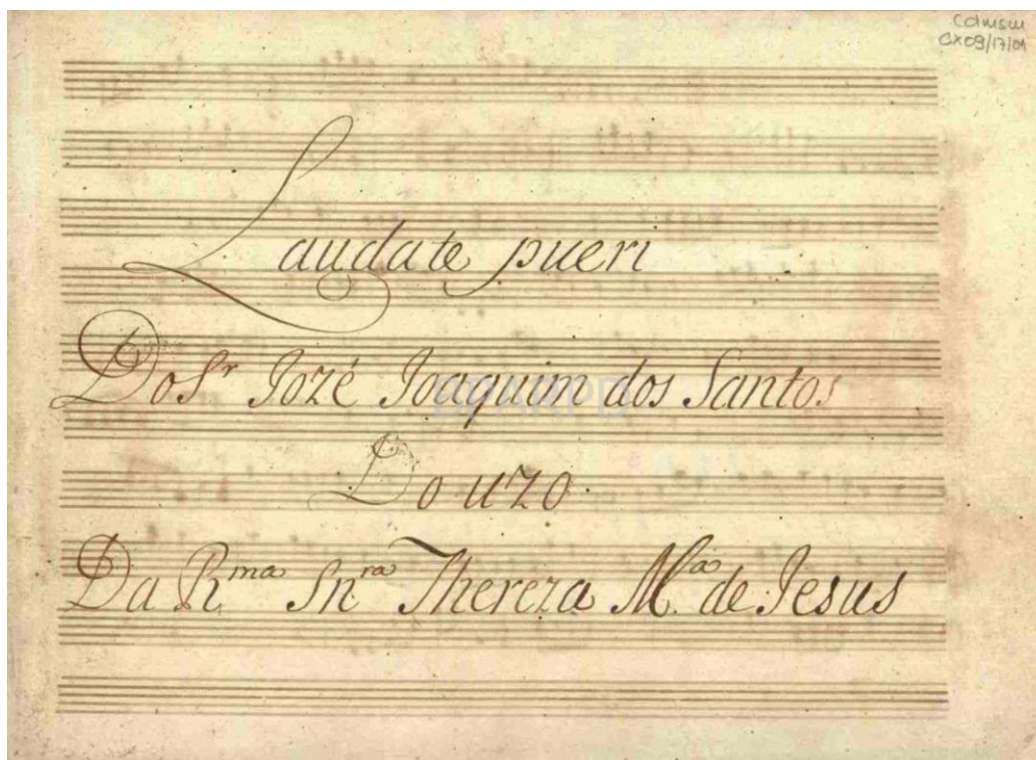 Cdmsm
Cx09/17/01
Laudate pueri
Do Sr José Joaquim dos Santos
BPARPD
Do uzo
Da Rma Snra Thereza Ma. de Jesus